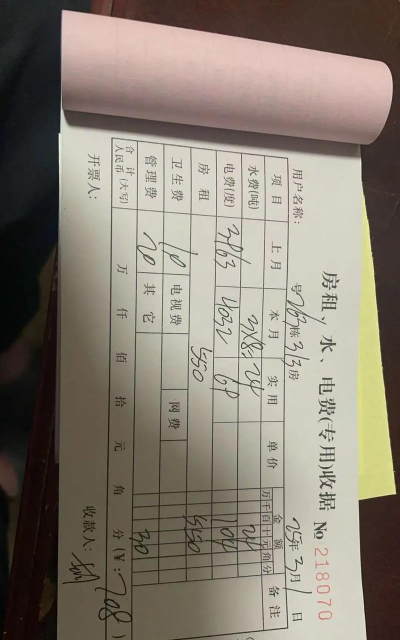 房租、水、电费(专用)收据 No 218070
用户名称: 号763栋313房 25年3月1日
项目 上月 本月 实用 单价 金额 备注
万千百十元角分
水费(吨) 3X8=24 24
电费(度) 3963 4032 69 104
房租 550 550
卫生费 10 电视费 网费
管理费 20 其它 30
合计人民币(大写) 万 仟 佰 拾 元 角 分(¥:708)
开票人: 收款人: